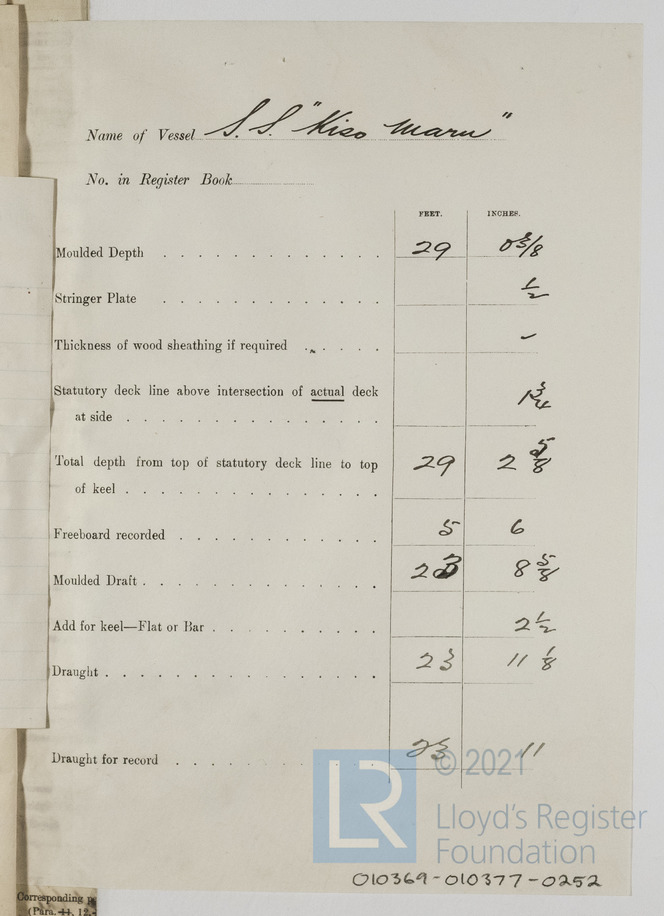 Name of Vessel S.S. "Kiso Maru"
No. in Register Book
FEET. INCHES.
Moulded Depth . . . . . . . . . . . . . 29 0 3/8
Stringer Plate . . . . . . . . . . . . . 1/2
Thickness of wood sheathing if required . . . . . –
Statutory deck line above intersection of actual deck
at side . . . . . . . . . . . . . . 1 3/4
Total depth from top of statutory deck line to top
of keel . . . . . . . . . . . . . . 29 2 5/8
Freeboard recorded . . . . . . . . . . . . 5 6
Moulded Draft . . . . . . . . . . . . . 23 8 5/8
Add for keel—Flat or Bar . . . . . . . . . . 2 1/2
Draught . . . . . . . . . . . . . . . 23 11 1/8
Draught for record . . . . . . . . . . . . 23 11
LR
© 2021
Lloyd's Register
Foundation
010369-010377-0252
Corresponding
(Para. 11, 12,